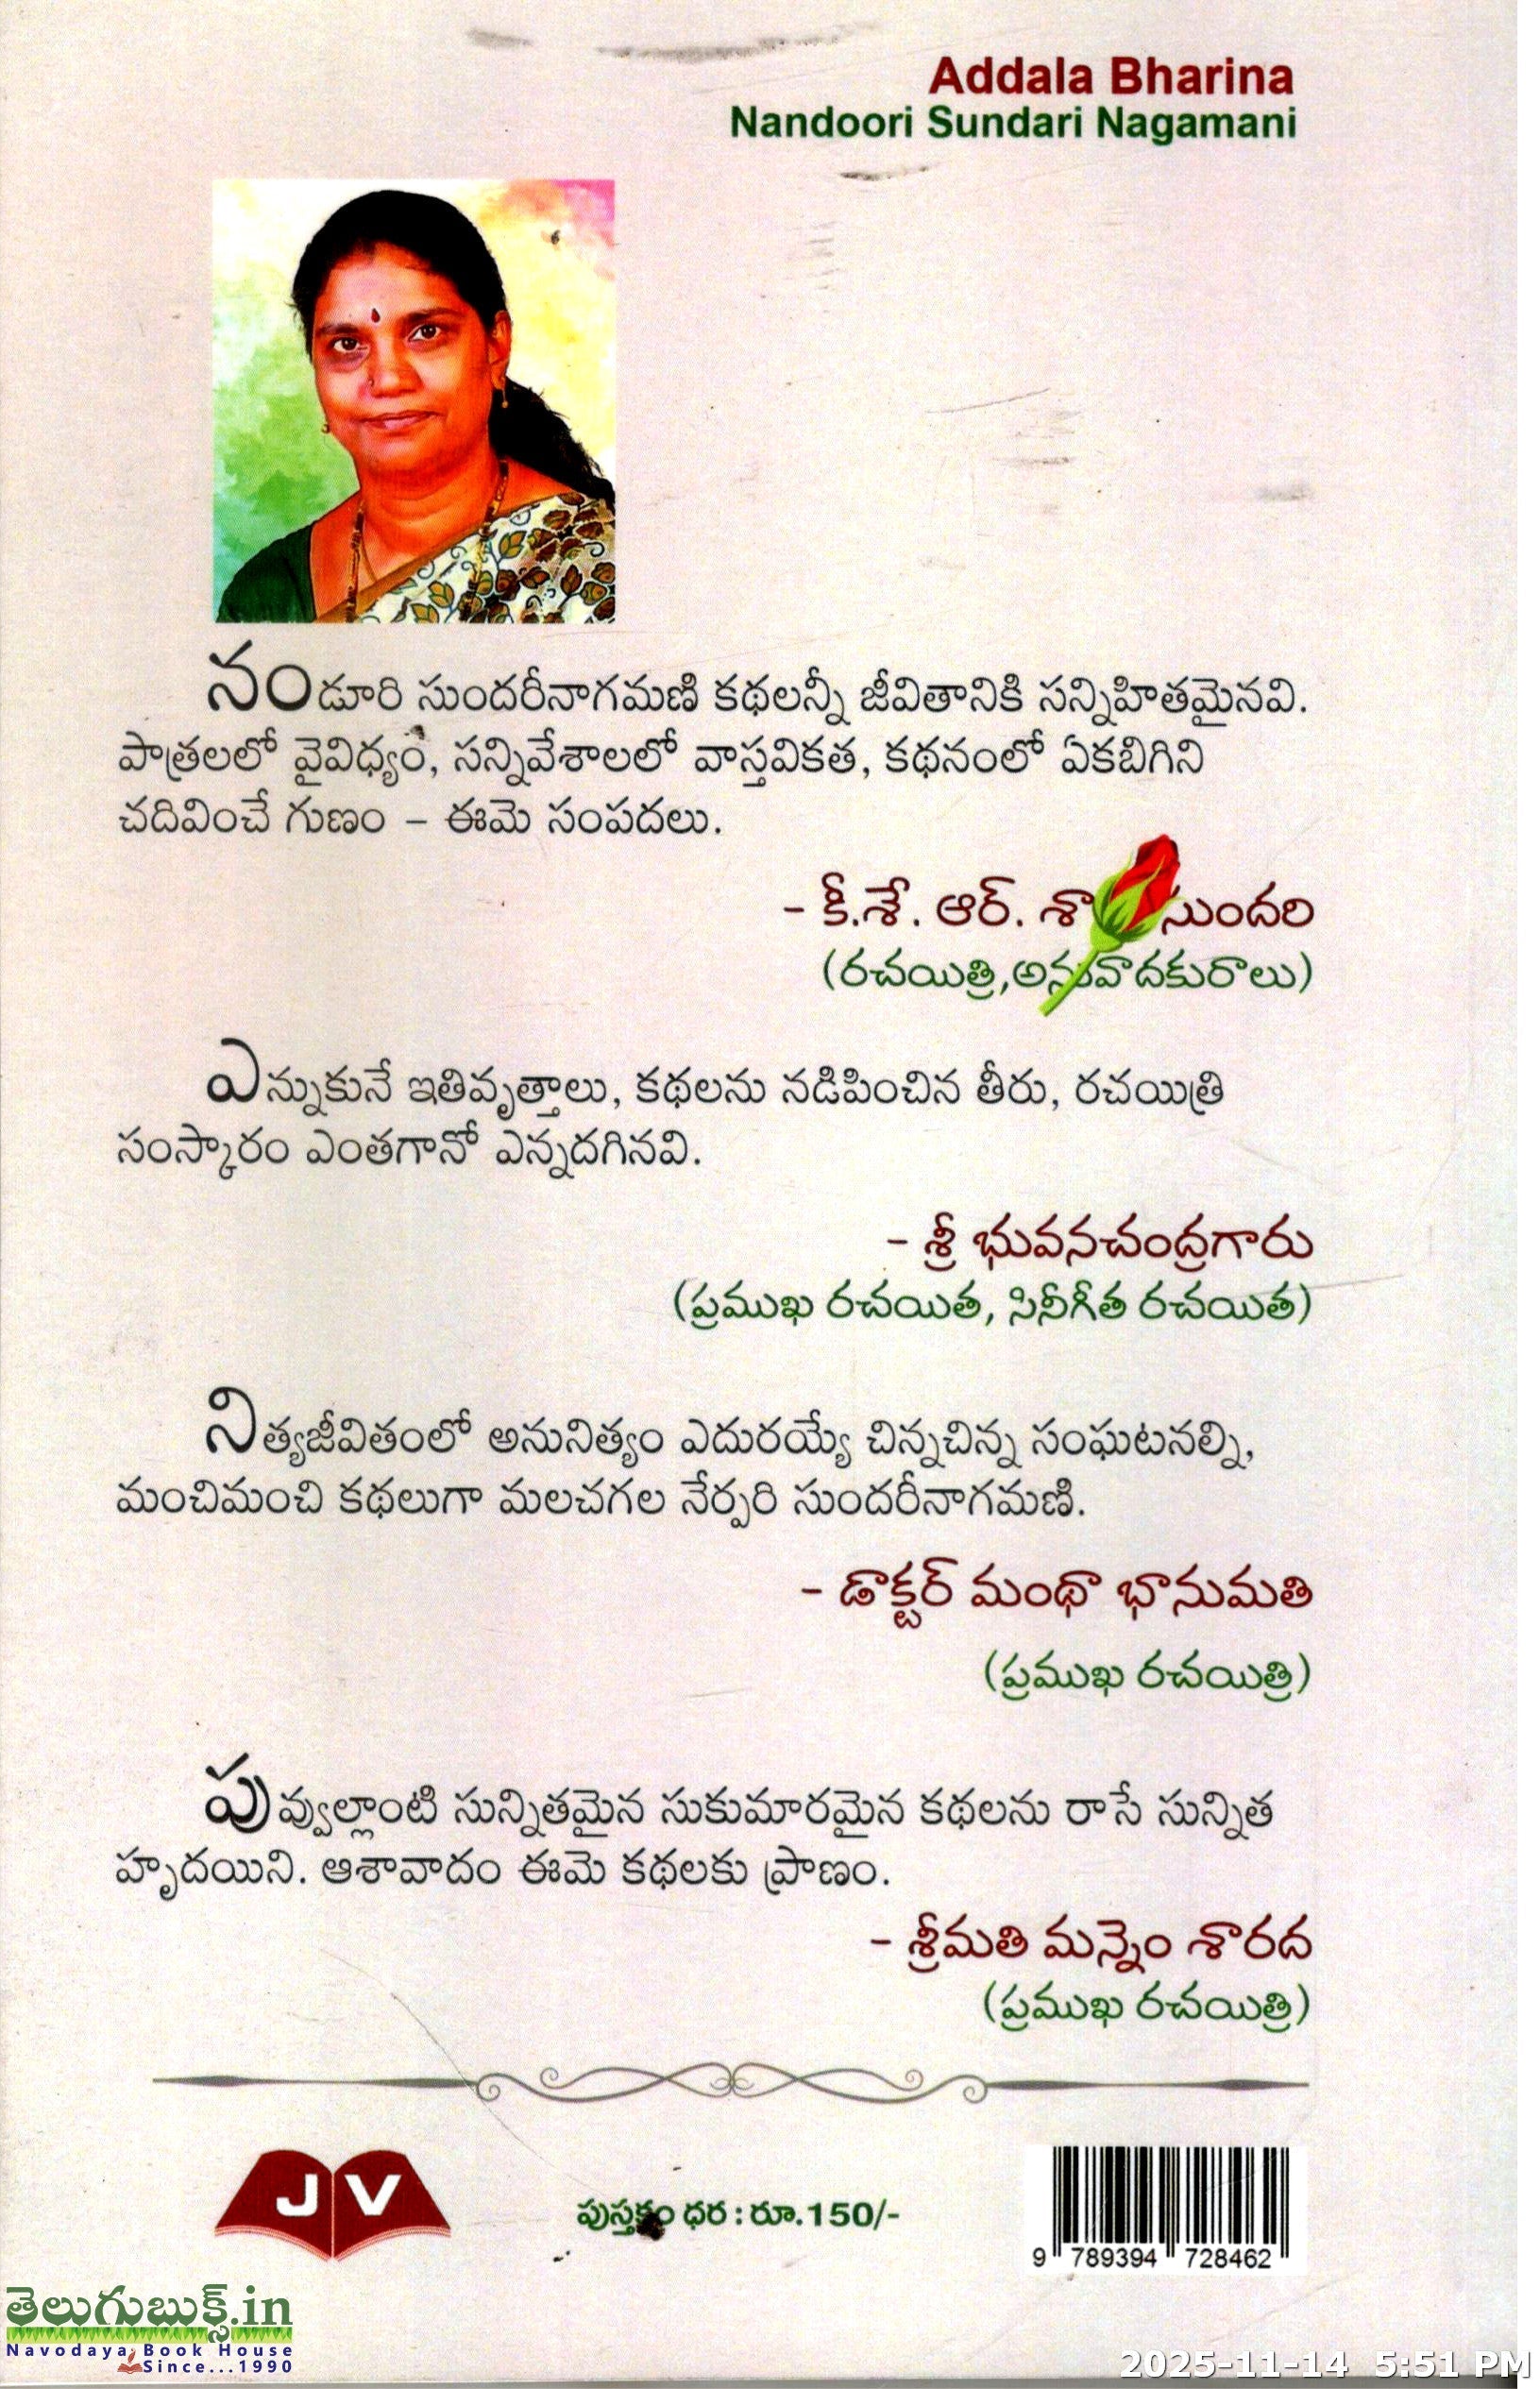 Addala Bharina
Nandoori Sundari Nagamani
నండూరి సుందరీనాగమణి కథలన్నీ జీవితానికి సన్నిహితమైనవి.
పాత్రలలో వైవిధ్యం, సన్నివేశాలలో వాస్తవికత, కథనంలో ఏకబిగిని
చదివించే గుణం – ఈమె సంపదలు.
- కీ.శే. ఆర్. శా
(రచయిత్రి,అనువాదకురాలు)
ఎన్నుకునే ఇతివృత్తాలు, కథలను నడిపించిన తీరు, రచయిత్రి
సంస్కారం ఎంతగానో ఎన్నదగినవి.
- శ్రీ భువనచంద్రగారు
(ప్రముఖ రచయిత, సినీగీత రచయిత)
నిత్యజీవితంలో అనునిత్యం ఎదురయ్యే చిన్నచిన్న సంఘటనల్ని,
మంచిమంచి కథలుగా మలచగల నేర్పరి సుందరీనాగమణి.
- డాక్టర్ మంథా భానుమతి
(ప్రముఖ రచయిత్రి)
పువ్వుల్లాంటి సున్నితమైన సుకుమారమైన కథలను రాసే సున్నిత
హృదయిని. ఆశావాదం ఈమె కథలకు ప్రాణం.
- శ్రీమతి మన్నెం శారద
(ప్రముఖ రచయిత్రి)
J V
పుస్తకం ధర : రూ.150/-
9 789394 728462
తెలుగుబుక్స్.in
Navodaya Book House
Since...1990
2025-11-14 5:51 PM